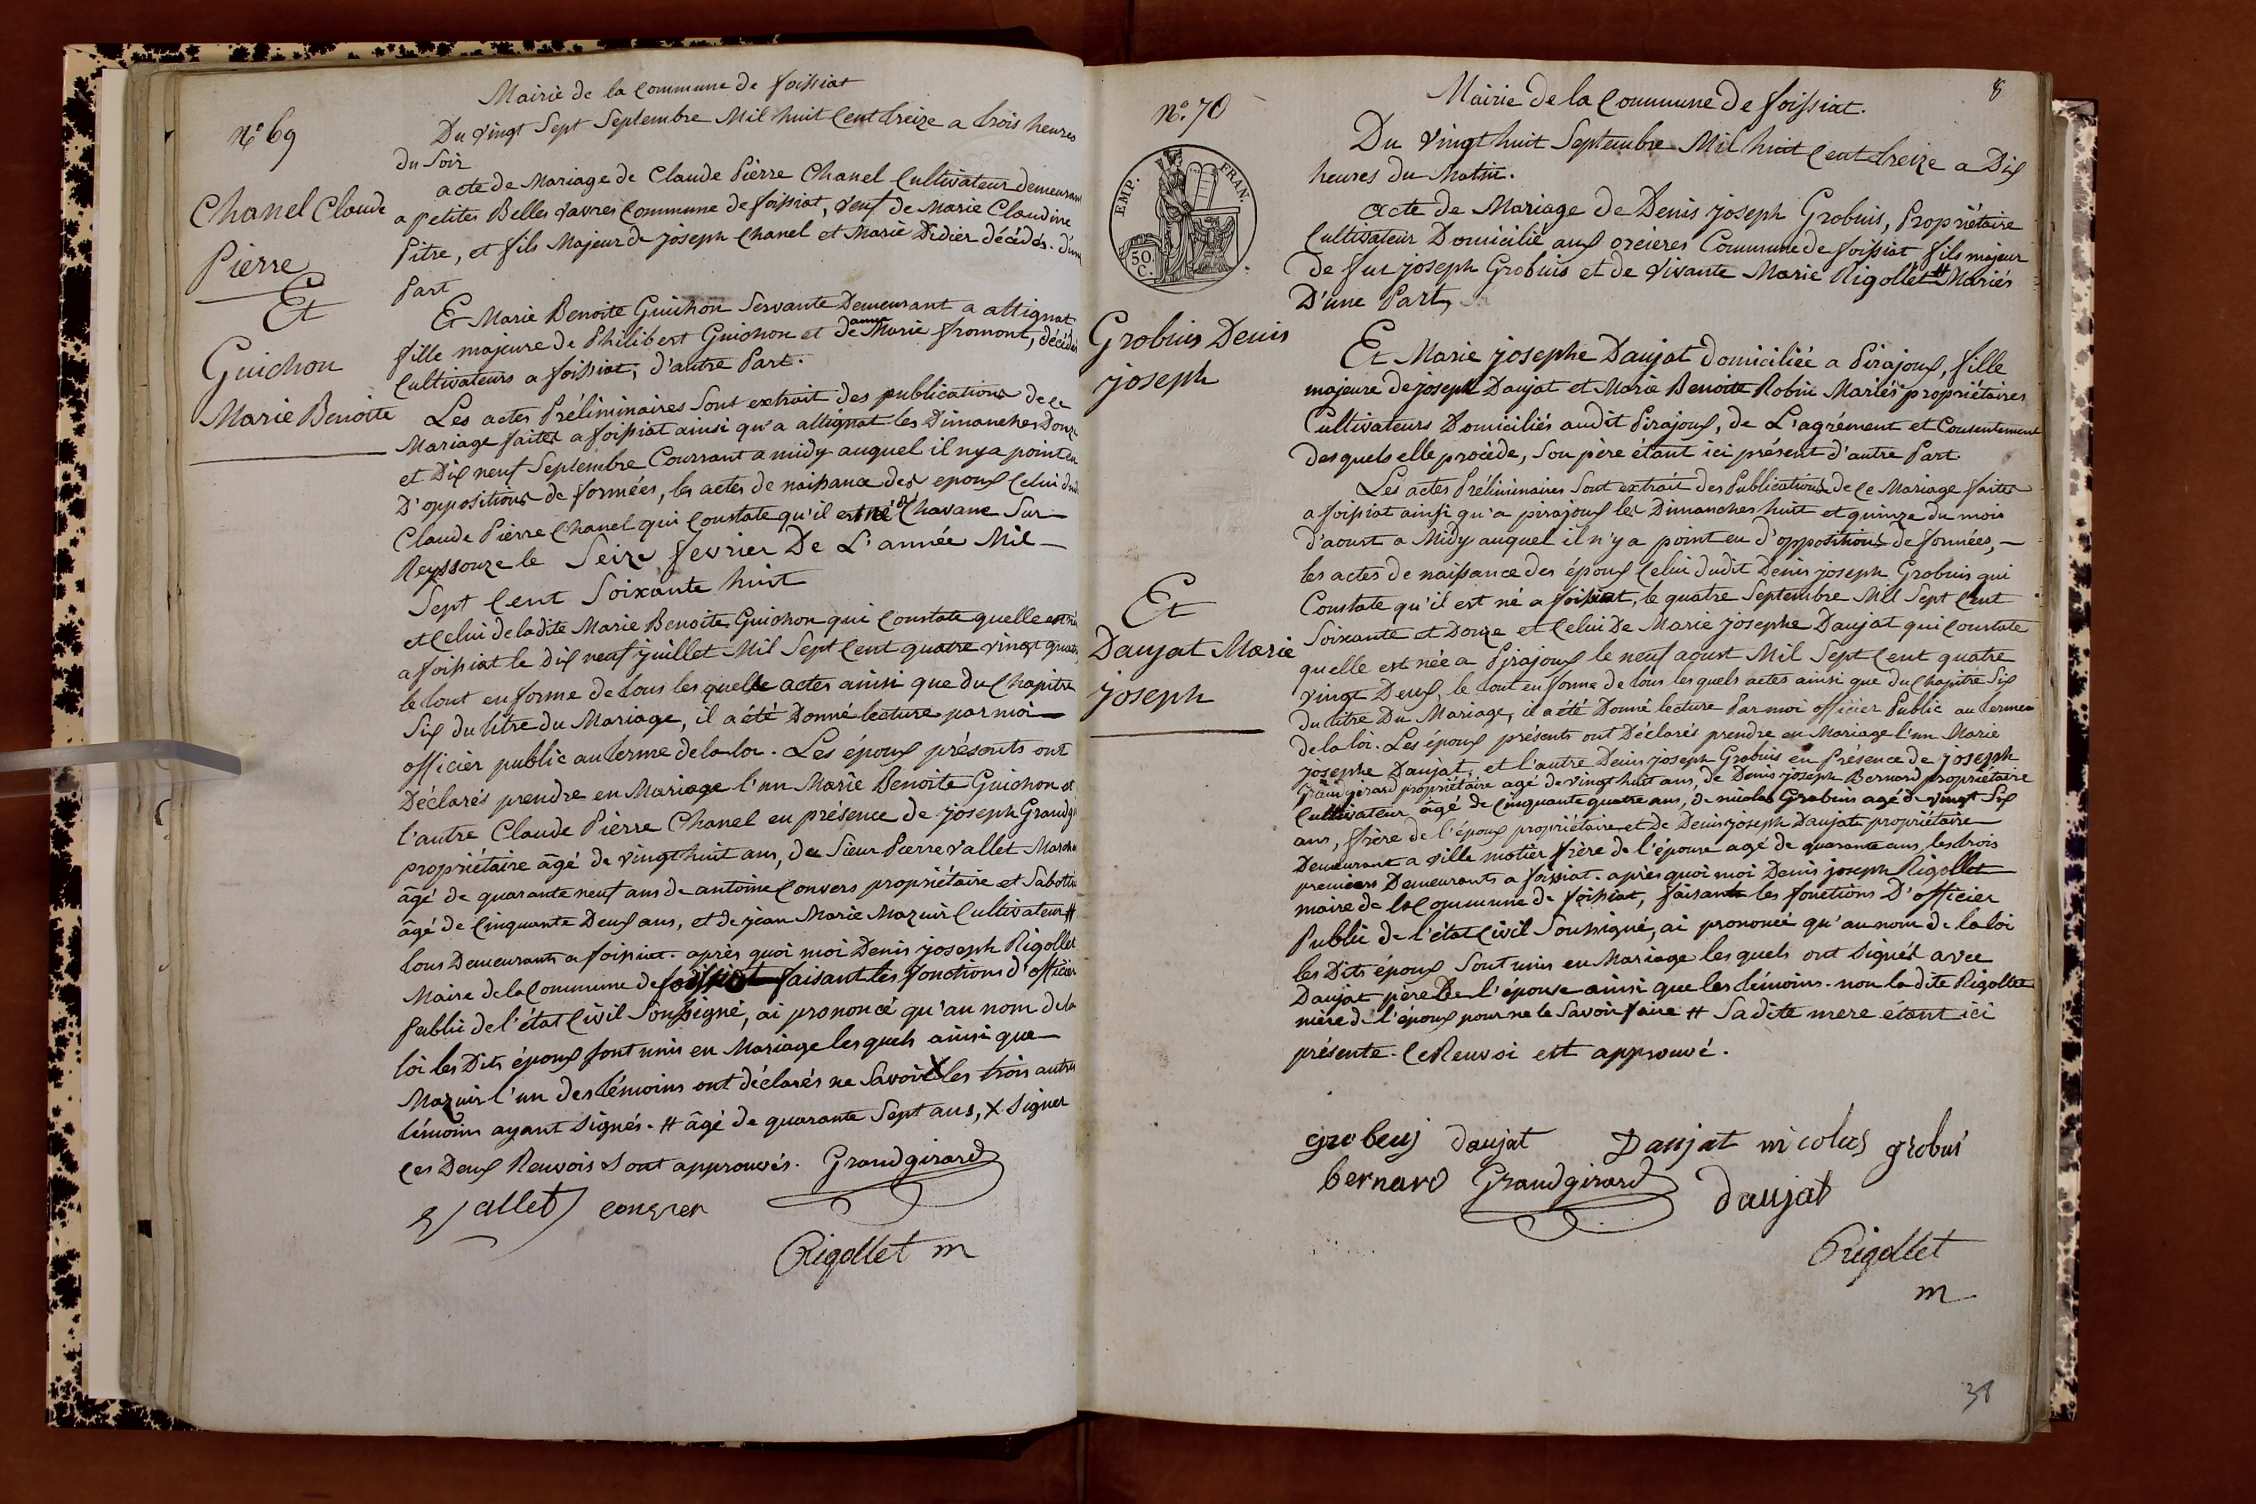 Mairie de la Commune de foissiat
n.° 69
Du Vingt Sept Septembre Mil huit Cent treize a trois heures
du Soir
acte de Mariage de Claude Pierre Chanel Cultivateur demeurant
a petites Belles vavres Commune de foissiat, veuf de Marie Claudine
Pitre, et fils Majeur de joseph Chanel et Marie Didier décédés. d'une
Part
Chanel Claude
Pierre
Et
Guichon
Marie Benoite
Et Marie Benoite Guichon Servante Demeurant a attignat
fille majeure de Philibert Guichon et de anne Marie fromont, décédés
Cultivateurs a foissiat, d'autre Part.
Les actes Préliminaires Sont extrait des publications de ce
Mariage faites a foissiat ainsi qu'a attignat les Dimanches Douze
et Dix neuf Septembre Courrant a midy auquel il n'y a point eu
D'oppositions de formées, les actes de naissance des epoux Celui dudit
Claude Pierre Chanel qui Constate qu'il est né a Chavane Sur
Reyssouze le Seize fevrier De L'année Mil
Sept Cent Soixante huit
et Celui de ladite Marie Benoite Guichon qui Constate quelle est née
a foissiat le Dix neuf juillet Mil Sept Cent quatre vingt quatre,
le tout en forme de tous les quels actes ainsi que du Chapitre
Six du titre du Mariage, il a été Donné lecture par moi
officier public au terme de la loi. Les époux présents ont
Déclarés prendre en Mariage l'un Marie Benoite Guichon et
l'autre Claude Pierre Chanel en présence de joseph Grandgirard
propriétaire âgé de vingt huit ans, de Sieur Pierre Vallet Marchand
âgé de quarante neuf ans de antoine Convers propriétaire et Sabottier
âgé de Cinquante Deux ans, et de jean Marie Mazuir Cultivateur #
tous Demeurants a foissiat. après quoi moi Denis joseph Rigollet
Maire de la Commune de foissiat faisant les fonctions d'officier
Public de l'état Civil Soussigné, ai prononcé qu'au nom de la
loi les Dits époux Sont unis en Mariage lesquels ainsi que
Mazuir l'un des témoins ont déclarés ne Savoir X les trois autres
témoins ayant Signés. # âgé de quarante Sept ans, X Signer
Ces Deux Renvois Sont approuvés. Grandgirard
Vallet convers
Rigollet m
8
Mairie de la Commune de foissiat.
n.° 70
EMP. FRAN.
50 C.
Du Vingt huit Septembre Mil huit Cent treize a Dix
heures du Matin.
acte de Mariage de Denis joseph Grobuis, Propriétaire
Cultivateur Domicilié aux orcieres Commune de foissiat fils majeur
de fut joseph Grobuis et de Vivante Marie Rigollet # Mariés
D'une Part,
Grobuis Denis
joseph
Et
Daujat Marie
joseph
Et Marie josephe Daujat domiciliée a Pirajoux, fille
majeure de joseph Daujat et Marie Benoite Robin Mariés propriétaires
Cultivateurs Domiciliés audit Pirajoux, de L'agrément et Consentement
desquels elle procède, Son père étant ici présent d'autre Part.
Les actes Préliminaires Sont extrait des Publications de Ce Mariage faites
a foissiat ainsi qu'a pirajoux les Dimanches huit et quinze du mois
d'aoust a Midy auquel il n'y a point eu d'oppositions de formées,
les actes de naissance des époux Celui dudit Denis joseph Grobuis qui
Constate qu'il est né a foissiat, le quatre Septembre Mil Sept Cent
Soixante et Douze et Celui De Marie josephe Daujat qui Constate
quelle est née a Pirajoux le neuf aoust Mil Sept Cent quatre
vingt Deux, le tout en forme de tous les quels actes ainsi que du Chapitre Six
du titre Du Mariage, il a été Donné lecture Par moi officier Public au terme
de la loi. Les époux présents ont Déclarés prendre en Mariage l'un Marie
josephe Daujat, et l'autre Denis joseph Grobuis en Présence de joseph
Grandgirard propriétaire agé de vingt huit ans, de Denis joseph Bernard propriétaire
Cultivateur âgé de Cinquante quatre ans, de nicolas Grobuis agé de vingt Six
ans, frère de l'époux propriétaire et De Denis joseph Daujat propriétaire
Demeurant a ville motier frère de l'épouse agé de quarante ans, les trois
premiers Demeurants a foissiat. après quoi moi Denis joseph Rigollet
maire de la Commune de foissiat, faisant les fonctions D'officier
Public de l'état Civil Soussigné, ai prononcé qu'au nom de la loi
les Dits époux Sont unis en Mariage les quels ont Signés avec
Daujat père De l'épouse ainsi que les témoins. non la dite Rigollet
mère de l'époux pour ne le Savoir faire # Sa dite mere étant ici
présente. Ce Renvoi est approuvé.
grobuis daujat Daujat nicolas grobuis
bernard Grandgirard daujat
Rigollet
m
38